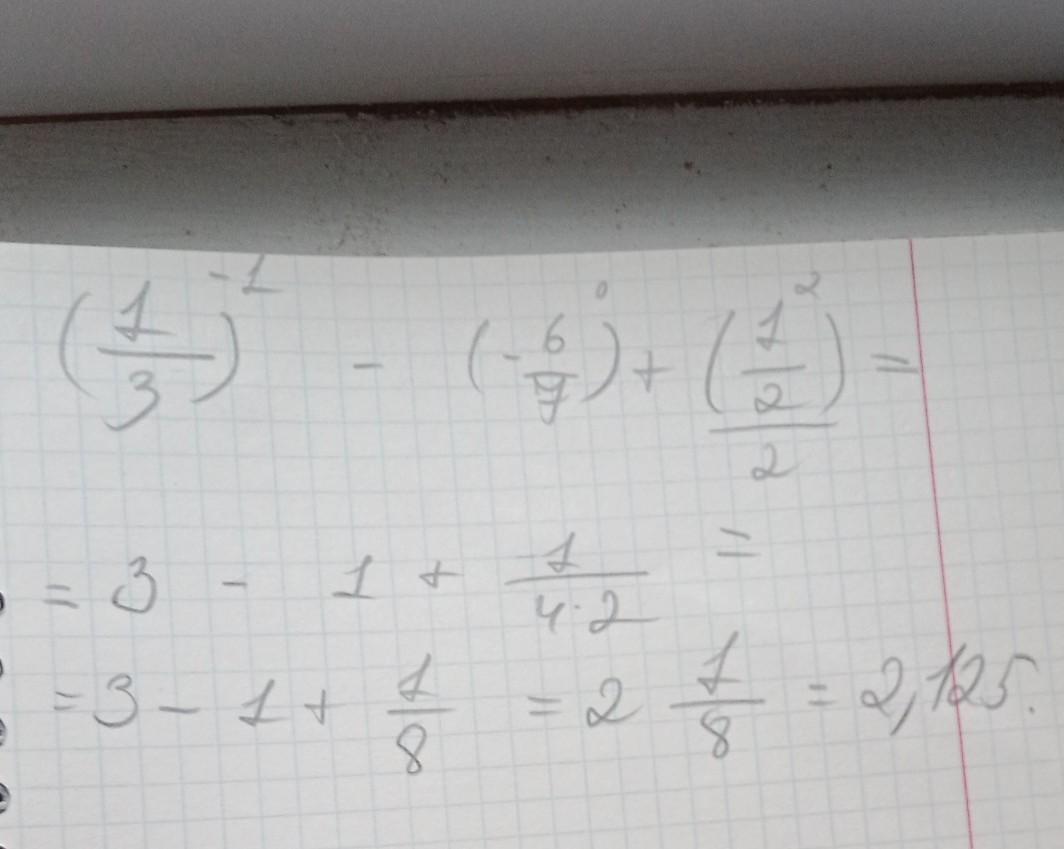 (1/3)^-1 - (-6/7)^0 + (1/2)^2/2 =
= 3 - 1 + 1/(4·2) =
= 3 - 1 + 1/8 = 2 1/8 = 2,125.